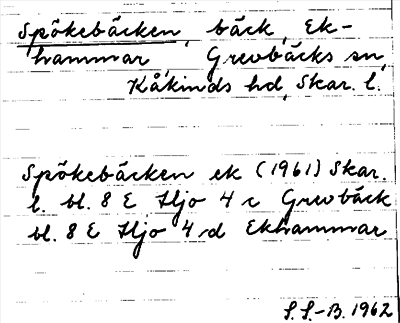 Spökebäcken, bäck, Ek-
hammar, Grevbäcks sn,
Kåkinds hd, Skar. l.
Spökebäcken ek (1961) Skar.
l. bl. 8 E Hjo 4 c Grevbäck
bl. 8 E Hjo 4 d Ekhammar
S.S.-B. 1962